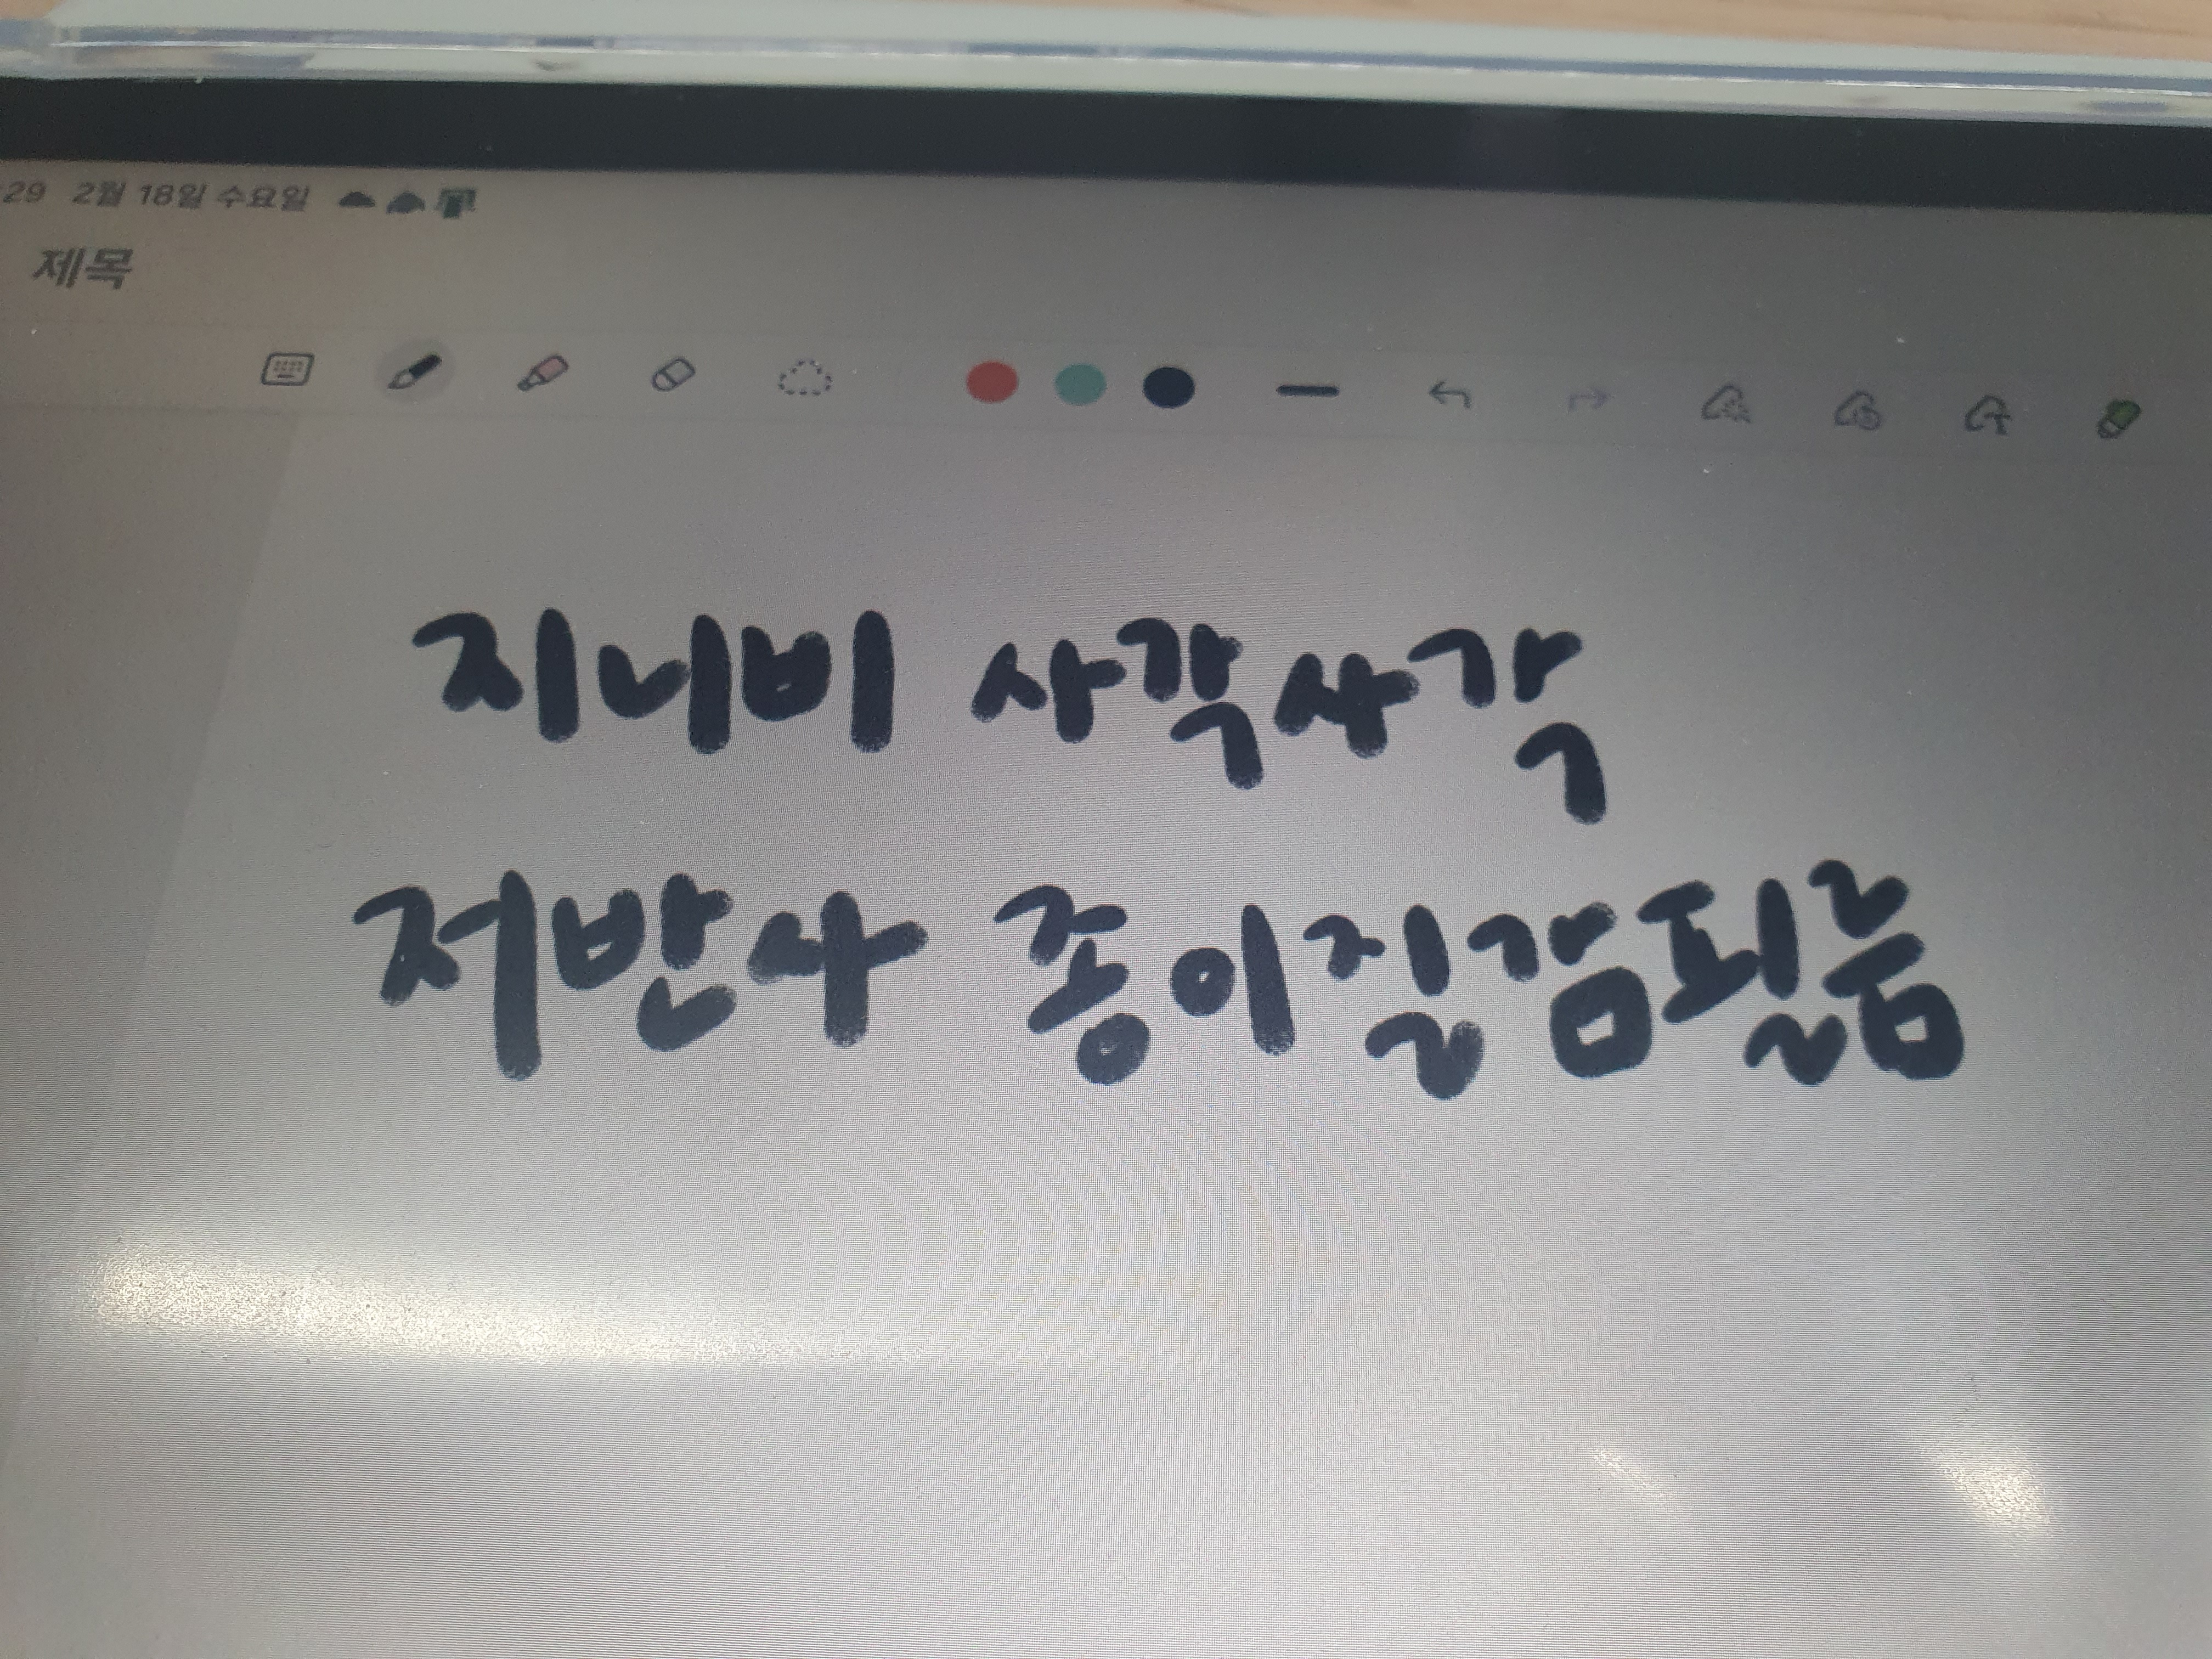 29 2월 18일 수요일
제목
지니비 사각사각
저반사 종이질감필름